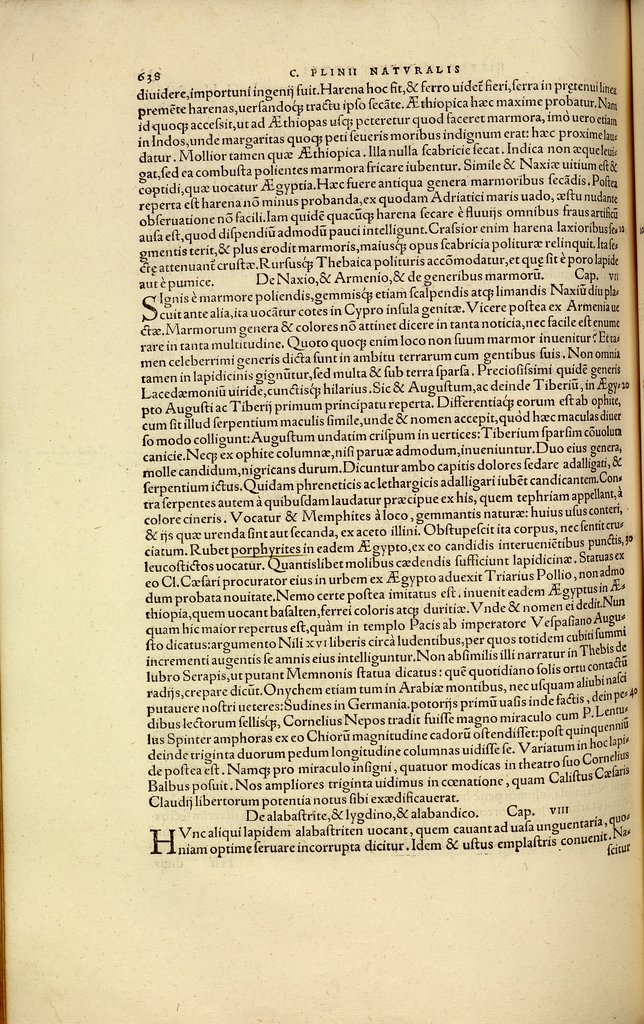 638 C. PLINII NATVRALIS
diuidere,importuni ingenij fuit.Harena hoc fit,& ferro uidet̃ fieri,serra in p̱tenui linea
premẽte harenas,uersandoq́; tractu ipso secãte. Æthiopica hæc maxime probatur. Nam
id quoq; accessit,ut ad Æthiopas usq; peteretur quod faceret marmora, imò uero etiam
in Indos,unde margaritas quoq; peti seueris moribus indignum erat: hæc proxime lau-
datur. Mollior tamen quæ Æthiopica. Illa nulla scabricie secat. Indica non æque leui-
gat,sed ea combusta polientes marmora fricare iubentur. Simile & Naxiæ uitium est &
coptidi,quæ uocatur Ægyptia.Hæc fuere antiqua genera marmoribus secãdis. Postea
reperta est harena nõ minus probanda,ex quodam Adriatici maris uado, æstu nudante
obseruatione nõ facili.Iam quidẽ quacũq; harena secare è fluuijs omnibus fraus artificũ
ausa est,quod dispendiũ admodũ pauci intelligunt.Crassior enim harena laxioribus se- 10
gmentis terit,& plus erodit marmoris,maiusq; opus scabricia polituræ relinquit. Ita se-
ctę attenuant̃ crustæ.Rursusq́; Thebaica polituris accõmodatur,et quę fit è poro lapide
aut è pumice. De Naxio,& Armenio,& de generibus marmorũ. Cap. VII
SIgnis è marmore poliendis,gemmisq́; etiam scalpendis atq; limandis Naxiũ diu pla-
cuit ante alia,ita uocãtur cotes in Cypro insula genitæ. Vicere postea ex Armenia ue
ctæ. Marmorum genera & colores nõ attinet dicere in tanta noticia,nec facile est enume
rare in tanta multitudine. Quoto quoq; enim loco non suum marmor inuenitur? Et ta-
men celeberrimi generis dicta sunt in ambitu terrarum cum gentibus suis. Non omnia
tamen in lapidicinis gignũtur,sed multa & sub terra sparsa. Preciosissimi quidẽ generis
Lacedæmoniũ uiride,cunctisq́; hilarius. Sic & Augustum,ac deinde Tiberiũ, in Ægy- 20
pto Augusti ac Tiberij primum principatu reperta. Differentiaq́; eorum est ab ophite,
cum sit illud serpentium maculis simile,unde & nomen accepit,quòd hæc maculas diuer
so modo colligunt: Augustum undatim crispum in uertices: Tiberium sparsim cõuoluta
canicie.Neq; ex ophite columnæ,nisi paruæ admodum,inueniuntur. Duo eius genera,
molle candidum,nigricans durum. Dicuntur ambo capitis dolores sedare adalligati, &
serpentium ictus. Quidam phreneticis ac lethargicis adalligari iubẽt candicantem. Con-
tra serpentes autem à quibusdam laudatur præcipue ex his, quem tephriam appellant,à
colore cineris. Vocatur & Memphites à loco, gemmantis naturæ: huius usus conteri,
& ijs quæ urenda sint aut secanda, ex aceto illini. Obstupescit ita corpus, nec sentit cru-
ciatum. Rubet porphyrites in eadem Ægypto,ex eo candidis interueniẽtibus punctis, 30
leucostictos uocatur. Quantislibet molibus cædendis sufficiunt lapidicinæ. Statuas ex
eo Cl.Cæsari procurator eius in urbem ex Ægypto aduexit Triarius Pollio, non admo
dum probata nouitate. Nemo certe postea imitatus est. inuenit eadem Ægyptus in Æ-
thiopia,quem uocant basalten,ferrei coloris atq; duritiæ. Vnde & nomen ei dedit.Nun
quam hic maior repertus est,quàm in templo Pacis ab imperatore Vespasiano Augu-
sto dicatus:argumento Nili XVI liberis circà ludentibus,per quos totidem cubiti summi
incrementi augentis se amnis eius intelliguntur.Non absimilis illi narratur in Thebis de
lubro Serapis,ut putant Memnonis statua dicatus: quẽ quotidiano solis ortu contactũ
radijs,crepare dicũt. Onychem etiam tum in Arabiæ montibus, nec usquam aliubi nasci
putauere nostri ueteres:Sudines in Germania.potorijs primũ uasis inde factis, dein pe- 40
dibus lectorum sellisq́;, Cornelius Nepos tradit fuisse magno miraculo cum P. Lentu-
lus Spinter amphoras ex eo Chiorũ magnitudine cadorũ ostendisset:post quinquenniũ
deinde triginta duorum pedum longitudine columnas uidisse se. Variatum in hoc lapi-
de postea est. Namq; pro miraculo insigni, quatuor modicas in theatro suo Cornelius
Balbus posuit. Nos ampliores triginta uidimus in cœnatione, quam Calistus Cæsaris
Claudij libertorum potentia notus sibi exædificauerat.
De alabastrite,& lygdino,& alabandico. Cap. VIII
HVnc aliqui lapidem alabastriten uocant, quem cauant ad uasa unguentaria, quo-
niam optime seruare incorrupta dicitur. Idem & ustus emplastris conuenit. Na-
scitur